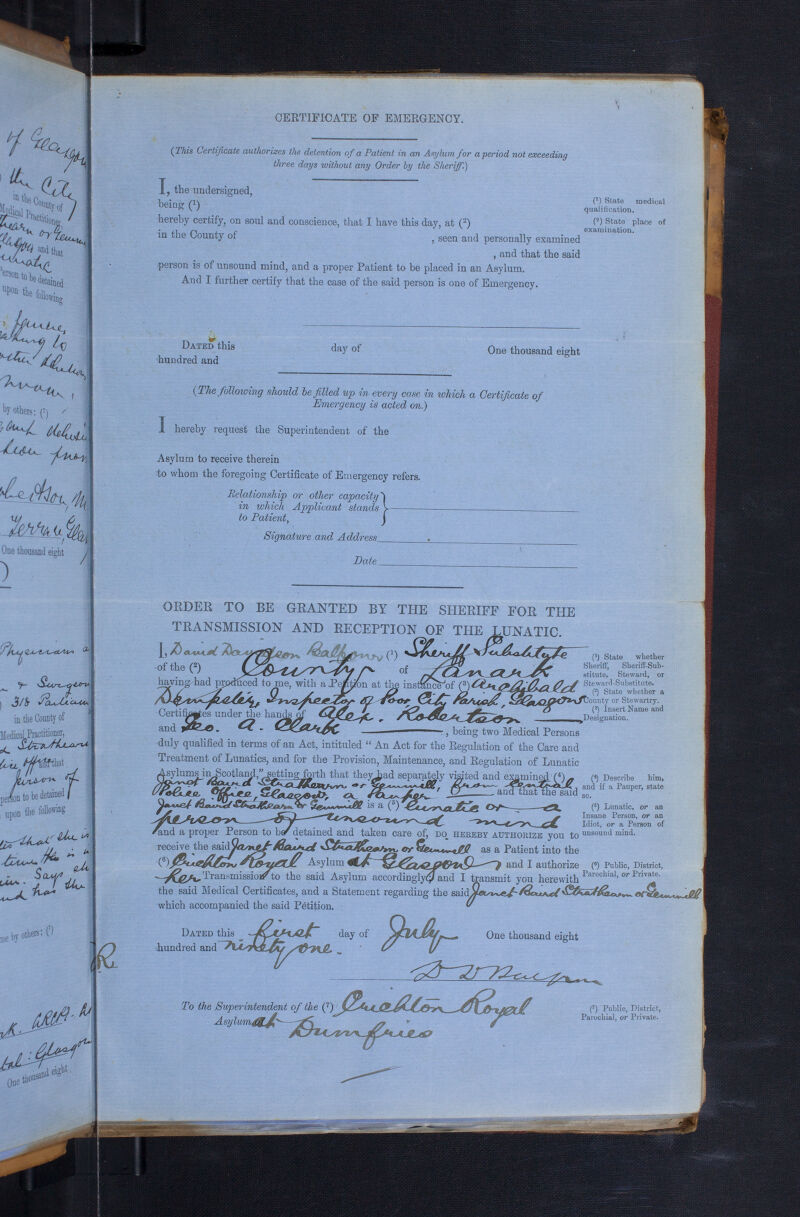 of Glasgow
the City
in the County of
Medical Practitioner
and that
lunatic
Person to be detained
upon the following
by others: (¹)
Terrace, Glas
One thousand eight
Physicians
& Surgeon
318 Parliam
in the County of
Medical Practitioner,
Strathearn
that
person of
person to be detained
upon the following
that she is
is a
Says she
and has she
me by others: (¹)
Glasgow
One thousand eight
CERTIFICATE OF EMERGENCY.
(This Certificate authorizes the detention of a Patient in an Asylum for a period not exceeding
three days without any Order by the Sheriff.)
I, the undersigned,
being (¹)
(¹) State medical
qualification.
hereby certify, on soul and conscience, that I have this day, at (²)
(²) State place of
examination.
in the County of , seen and personally examined
, and that the said
person is of unsound mind, and a proper Patient to be placed in an Asylum.
And I further certify that the case of the said person is one of Emergency.
DATED this day of One thousand eight
hundred and
(The following should be filled up in every case in which a Certificate of
Emergency is acted on.)
I hereby request the Superintendent of the
Asylum to receive therein
to whom the foregoing Certificate of Emergency refers.
Relationship or other capacity
in which Applicant stands
to Patient,
Signature and Address
Date
ORDER TO BE GRANTED BY THE SHERIFF FOR THE
TRANSMISSION AND RECEPTION OF THE LUNATIC.
I, David Davidson Balfour (¹) Sheriff Substitute
of the (²) County of Lanark
(¹) State whether
Sheriff, Sheriff-Sub-
stitute, Steward, or
Steward-Substitute.
having had produced to me, with a Petition at the instance of (³) Archibald
Dempster, Inspector of Poor City Parish, Glasgow
(²) State whether a
County or Stewartry.
Certificates under the hands of Alex. Robertson
(³) Insert Name and
Designation.
and Geo. A. Clark , being two Medical Persons
duly qualified in terms of an Act, intituled "An Act for the Regulation of the Care and
Treatment of Lunatics, and for the Provision, Maintenance, and Regulation of Lunatic
Asylums in Scotland," setting forth that they had separately visited and examined (⁴)
Janet Baird Strathearn or Gemmill, from Central
Police Office, Glasgow, a Pauper and that the said
(⁴) Describe him,
and if a Pauper, state
so.
Janet Baird Strathearn or Gemmill is a (⁵) lunatic or a
person of unsound mind
(⁵) Lunatic, or an
Insane Person, or an
Idiot, or a Person of
unsound mind.
and a proper Person to be detained and taken care of, DO HEREBY AUTHORIZE YOU to
receive the said Janet Baird Strathearn or Gemmill as a Patient into the
(⁶) Crichton Royal Asylum at Glasgow and I authorize
(⁶) Public, District,
Parochial, or Private.
her Transmission to the said Asylum accordingly; and I transmit you herewith
the said Medical Certificates, and a Statement regarding the said Janet Baird Strathearn or Gemmill
which accompanied the said Petition.
DATED this first day of July One thousand eight
hundred and ninety one.
To the Superintendent of the (⁷) Crichton Royal
Asylum at Dumfries
(⁷) Public, District,
Parochial, or Private.